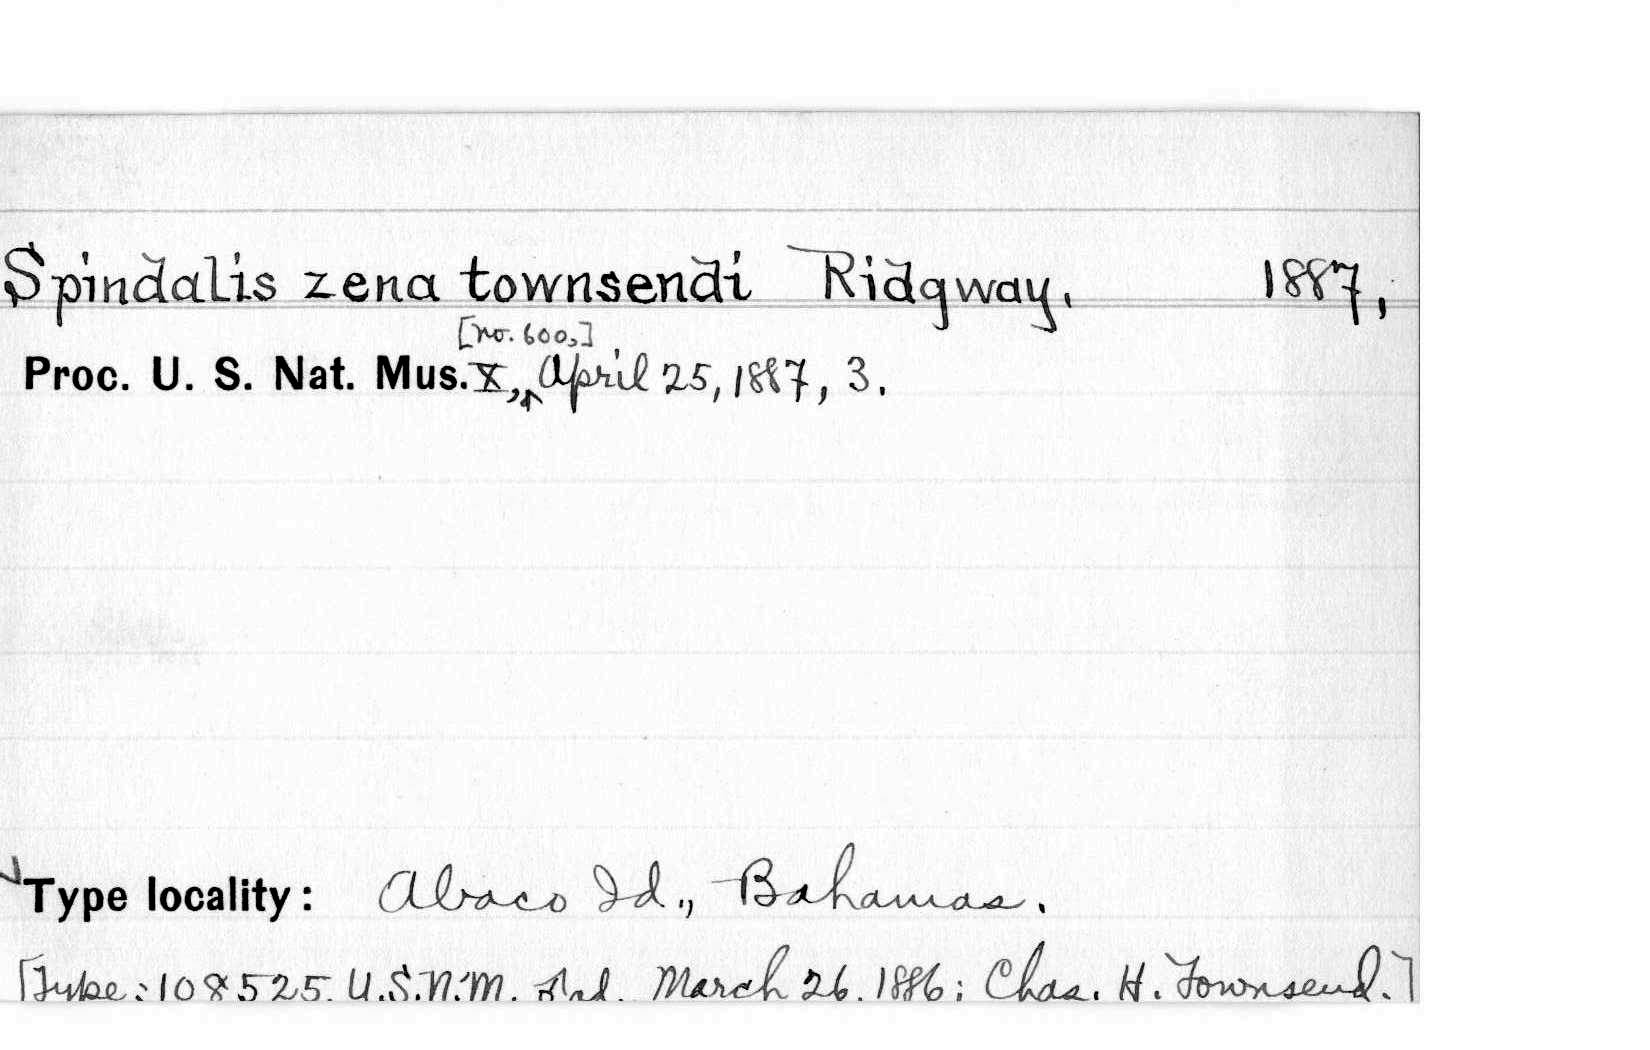 Spindalis zena townsendi Ridgway. 1887,
[no. 600,]
Proc. U. S. Nat. Mus. X, ‸ April 25, 1887, 3.
Type locality: Abaco Id., Bahamas.
[Type: 108525. U.S.N.M. Ad. March 26. 1886; Chas. H. Townsend.]